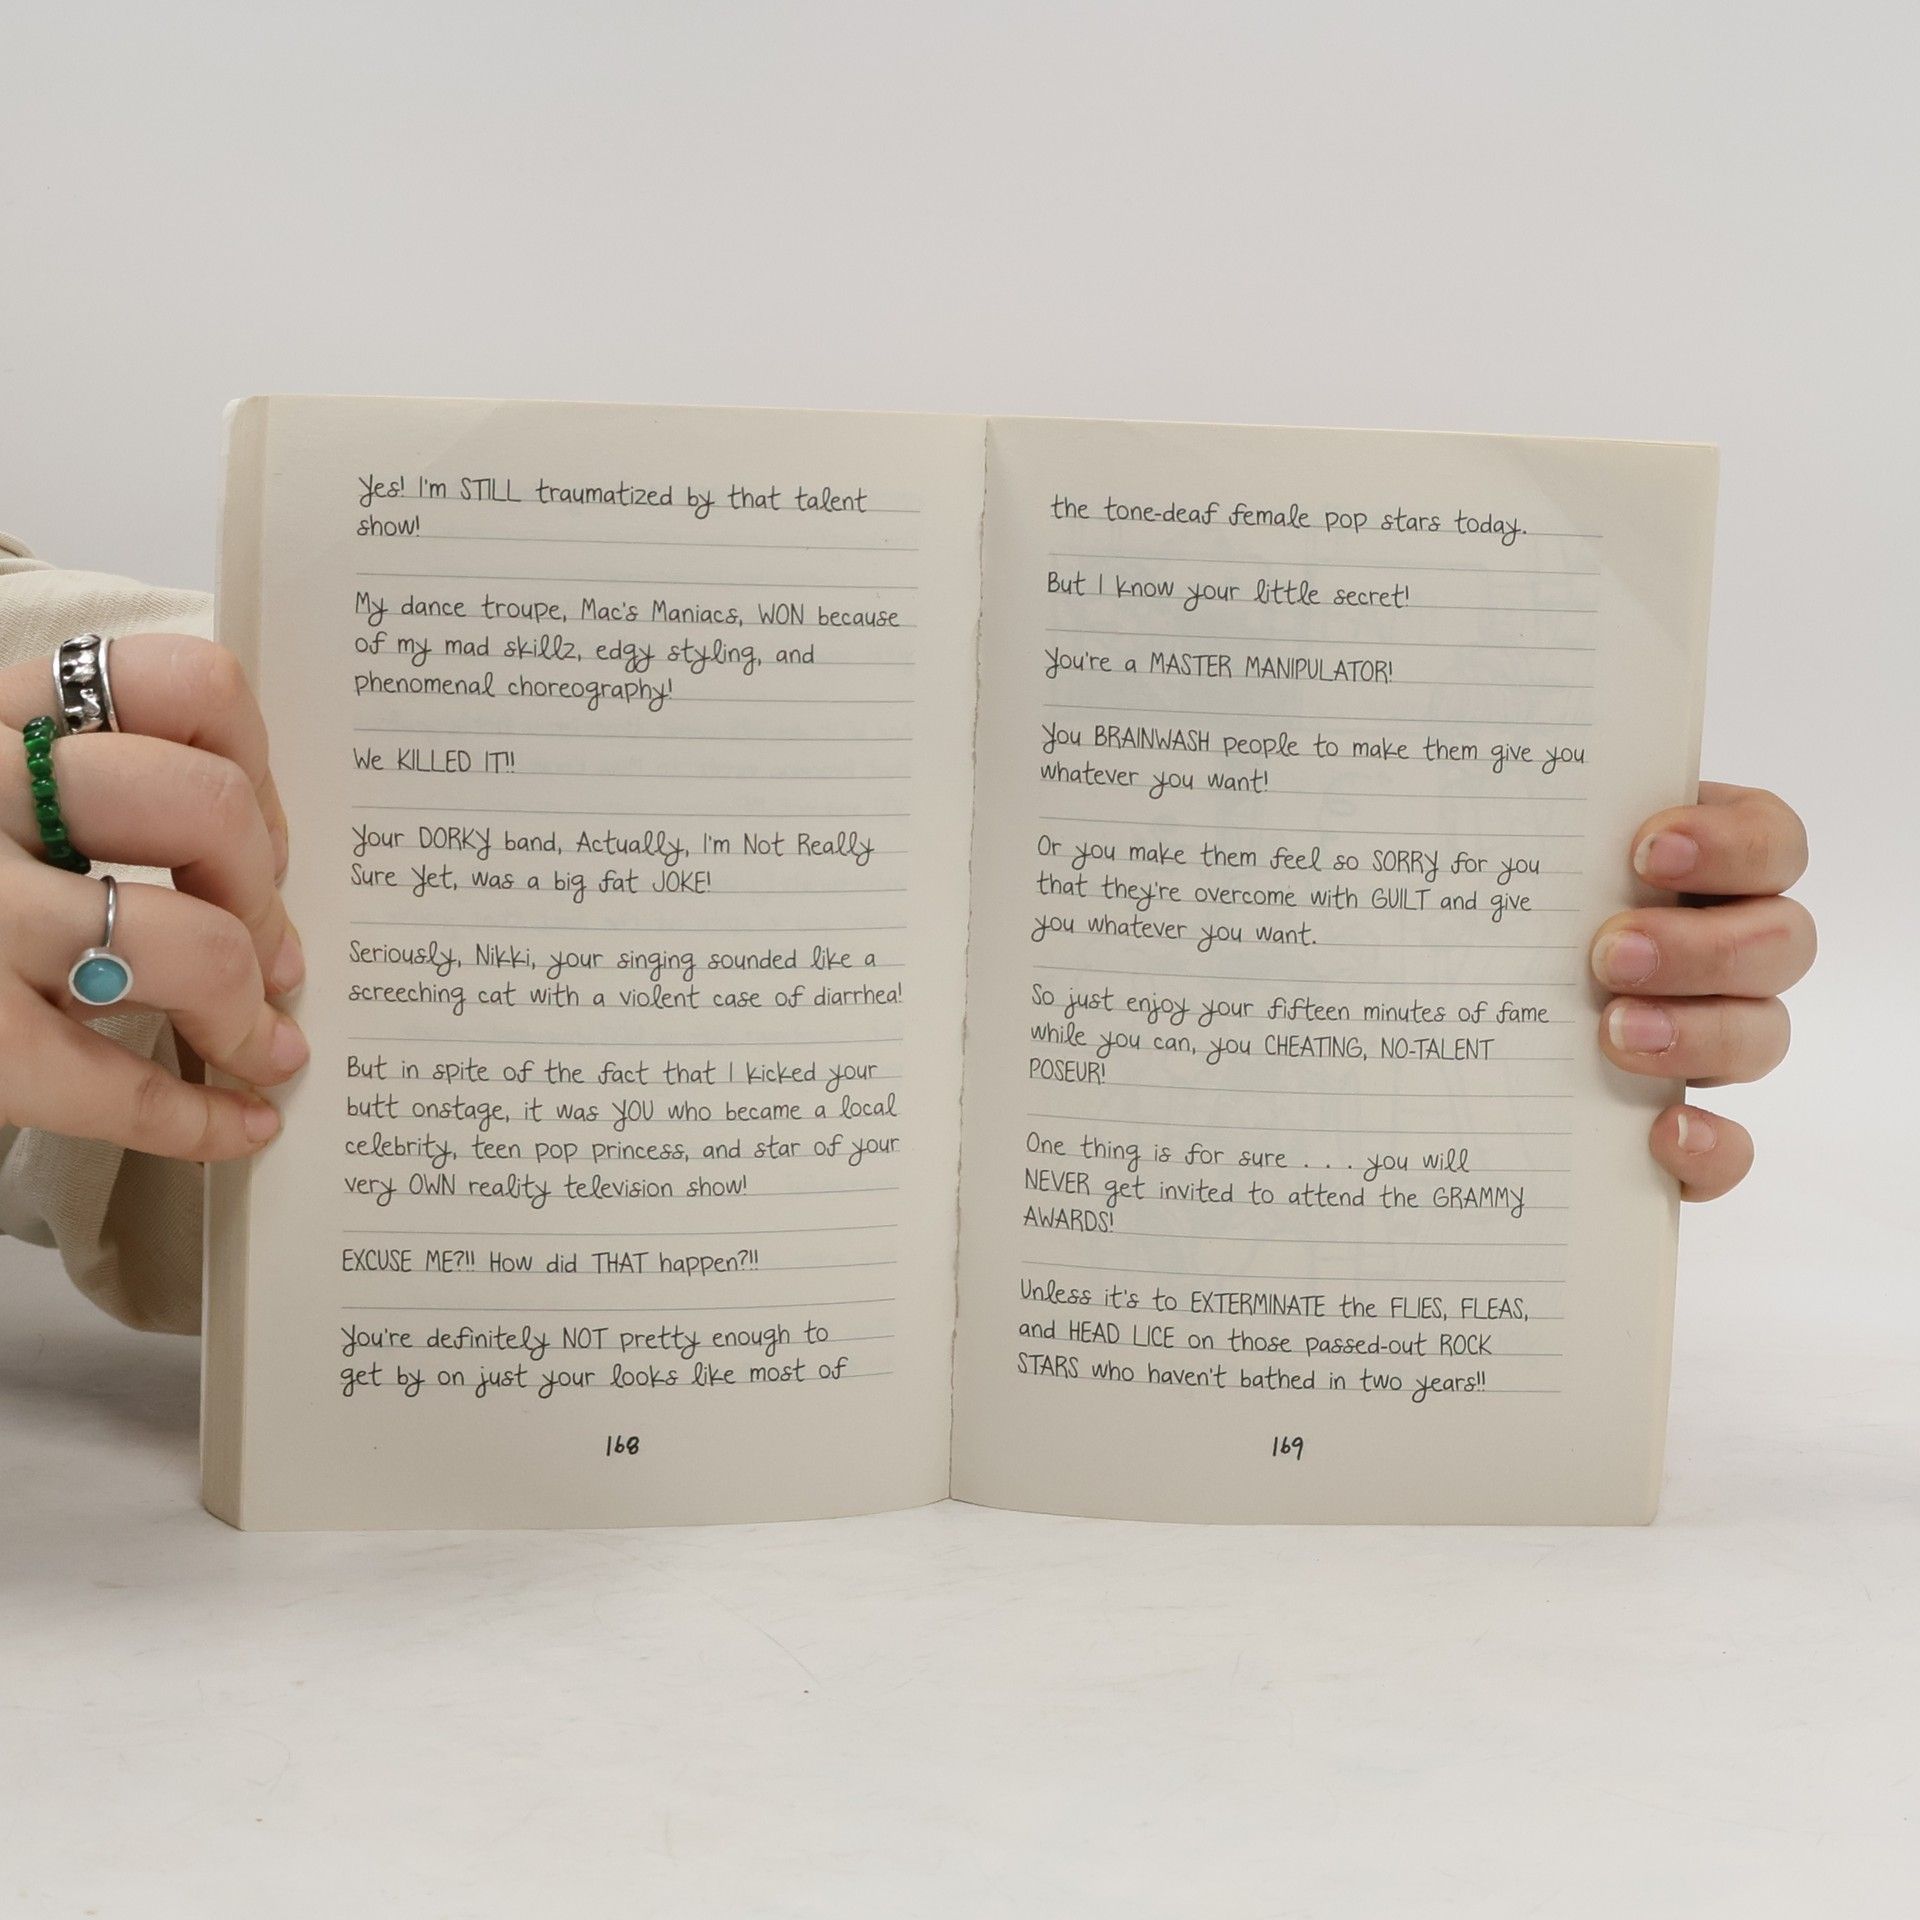 Yes! I'm STILL traumatized by that talent
show!
My dance troupe, Mac's Maniacs, WON because
of my mad skillz, edgy styling, and
phenomenal choreography!
We KILLED IT!!
Your DORKY band, Actually, I'm Not Really
Sure Yet, was a big fat JOKE!
Seriously, Nikki, your singing sounded like a
screeching cat with a violent case of diarrhea!
But in spite of the fact that I kicked your
butt onstage, it was YOU who became a local
celebrity, teen pop princess, and star of your
very OWN reality television show!
EXCUSE ME?!! How did THAT happen?!!
You're definitely NOT pretty enough to
get by on just your looks like most of
168
the tone-deaf female pop stars today.
But I know your little secret!
You're a MASTER MANIPULATOR!
You BRAINWASH people to make them give you
whatever you want!
Or you make them feel so SORRY for you
that they're overcome with GUILT and give
you whatever you want.
So just enjoy your fifteen minutes of fame
while you can, you CHEATING, NO-TALENT
POSEUR!
One thing is for sure . . . you will
NEVER get invited to attend the GRAMMY
AWARDS!
Unless it's to EXTERMINATE the FLIES, FLEAS,
and HEAD LICE on those passed-out ROCK
STARS who haven't bathed in two years!!
169